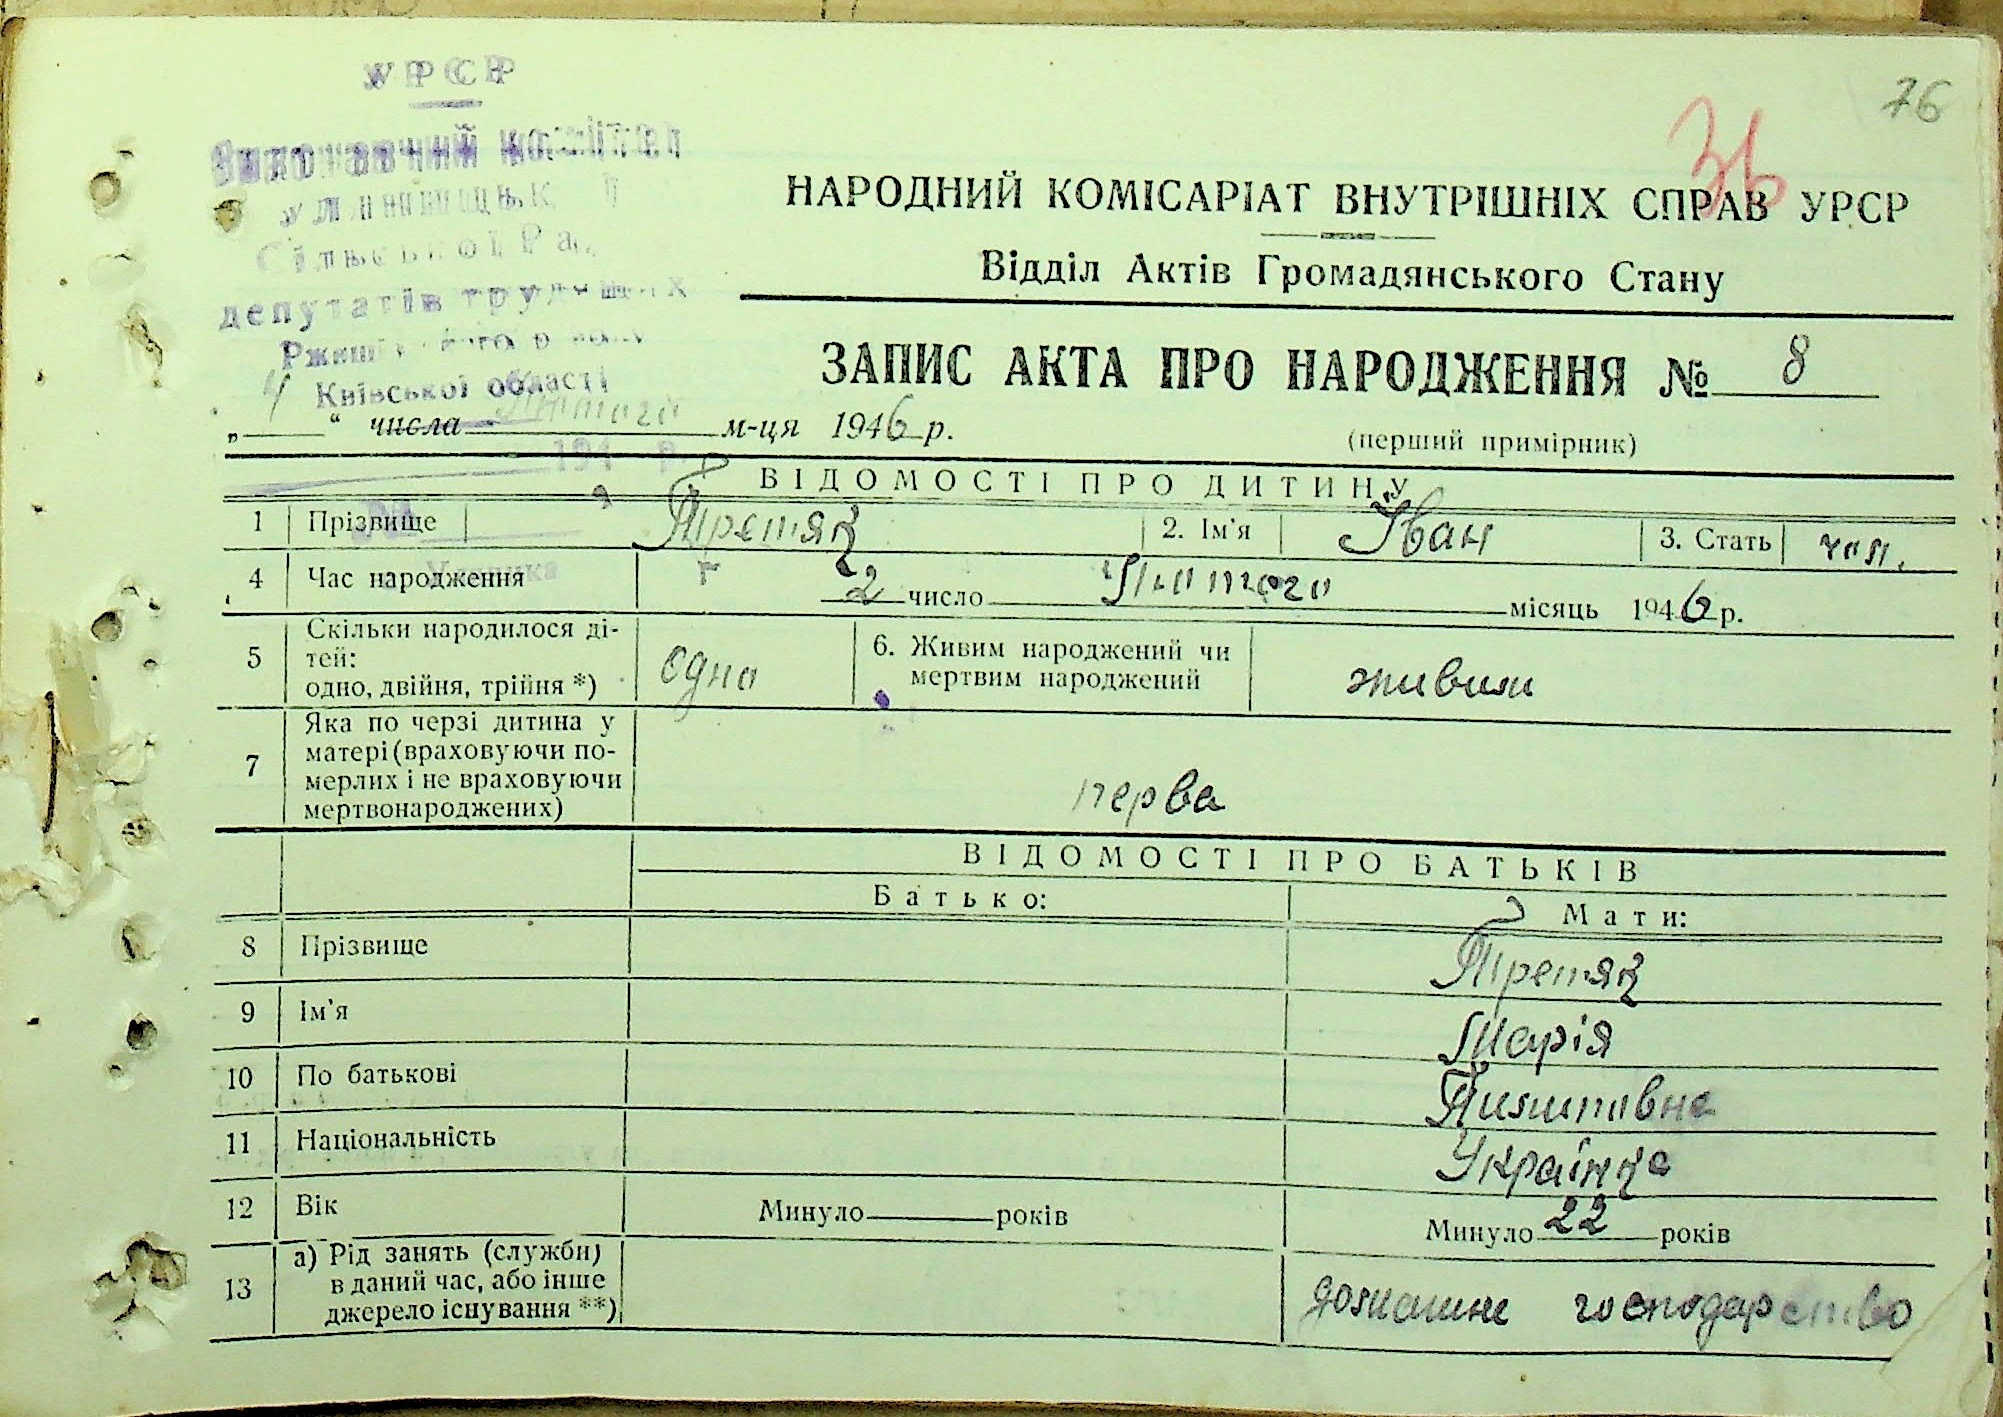 УРСР
76
36
Виконавчий комітет
Сільської Ради
депутатів трудящих
Київської області
194 р.
НАРОДНИЙ КОМІСАРІАТ ВНУТРІШНІХ СПРАВ УРСР
Відділ Актів Громадянського Стану
ЗАПИС АКТА ПРО НАРОДЖЕННЯ № 8
„4“ числа Лютого м-ця 1946 р.
(перший примірник)
ВІДОМОСТІ ПРО ДИТИНУ
1 Прізвище Третяк 2. Ім'я Іван 3. Стать чол.
4 Час народження 2 число Лютого місяць 1946 р.
5 Скільки народилося ді-
тей:
одно, двійня, трійня *) одно
6. Живим народжений чи
мертвим народжений живим
7 Яка по черзі дитина у
матері (враховуючи по-
мерлих і не враховуючи
мертвонароджених) перва
ВІДОМОСТІ ПРО БАТЬКІВ
Батько: Мати:
8 Прізвище Третяк
9 Ім'я Марія
10 По батькові
11 Національність Українка
12 Вік Минуло років Минуло 22 років
13 а) Рід занять (служби)
в даний час, або інше
джерело існування **) домашнє господарство